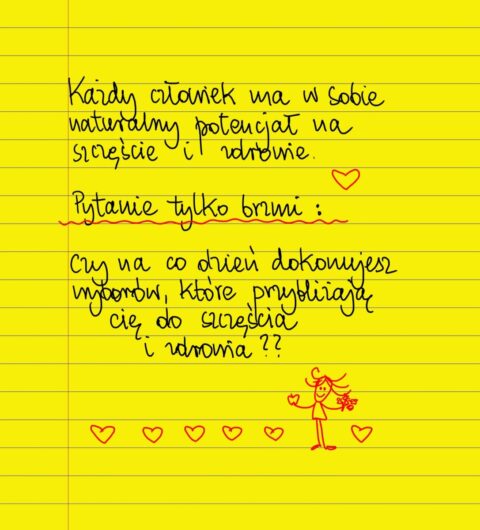 Każdy człowiek ma w sobie
naturalny potencjał na
szczęście i zdrowie.
Pytanie tylko brzmi :
Czy na co dzień dokonujesz
wyborów, które przybliżają
cię do szczęścia
i zdrowia ??